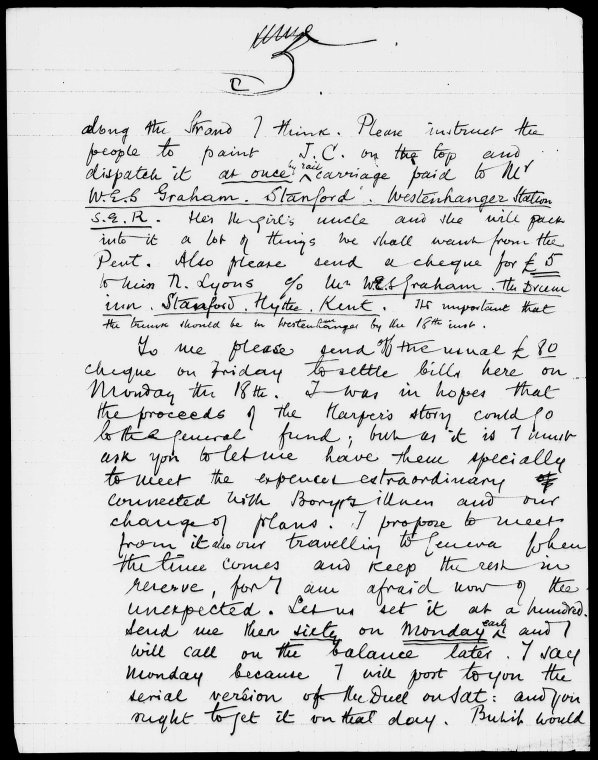 2
along the Strand I think. Please instruct the
people to paint J.C. on the top and
dispatch it at once by rail carriage paid to Mr
W.E.S Graham. Stanford. Westenhanger Station
S.E.R. He's the girl's uncle and she will pack
into it a lot of things we shall want from the
Pent. Also please send a cheque for £5
to Miss N. Lyons c/o Mr W.E.S Graham. The Drum
inn. Stanford. Hythe. Kent. It is important that
the trunk should be in Westenhanger by the 18th inst.
To me please send off the usual £80
cheque on Friday to settle bills here on
Monday the 18th. I was in hopes that
the proceeds of the Harpers story could go
to the general fund; but as it is I must
ask you to let me have them specially
to meet the expenses extraordinary of
connected with Borys's illness and our
change of plans. I propose to meet
from it also our travelling to Geneva when
the time comes and keep the rest in
reserve, for I am afraid now of the
unexpected. Let us set it at a hundred.
Send me then sixty on Monday early and I
will call on the balance later. I say
Monday because I will post to you the
serial version of the Duel on Sat: and you
ought to get it on that day. But it would